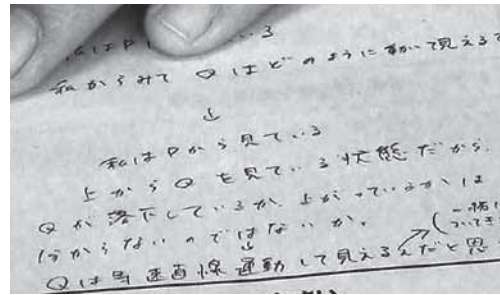 私はP いる
私からみて Qはどのように動いて見えるで
↓
私はPから見ている
上からQを見ている状態だから、
Qが落下しているか、上がっているかは
分からないのではないか。
(一緒に
ついてき
Qは等速直線運動して見えるんだと思